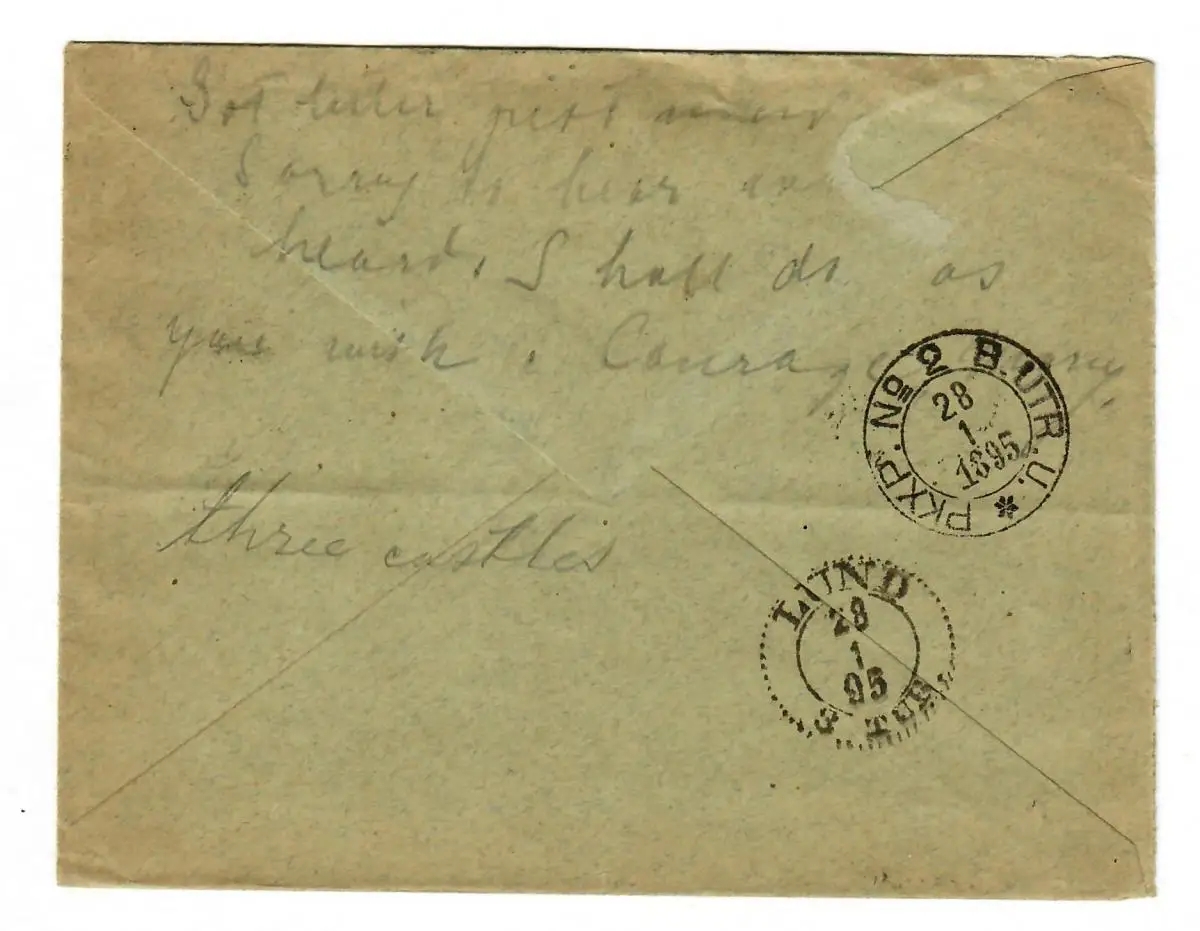 Got letter just now
Sorry to hear
heard. Shall do as
you wish. Courage
three castles
PKXP. No 2 B. UTR. U.
28
1
1895
LUND
28
1
95
3 TUR